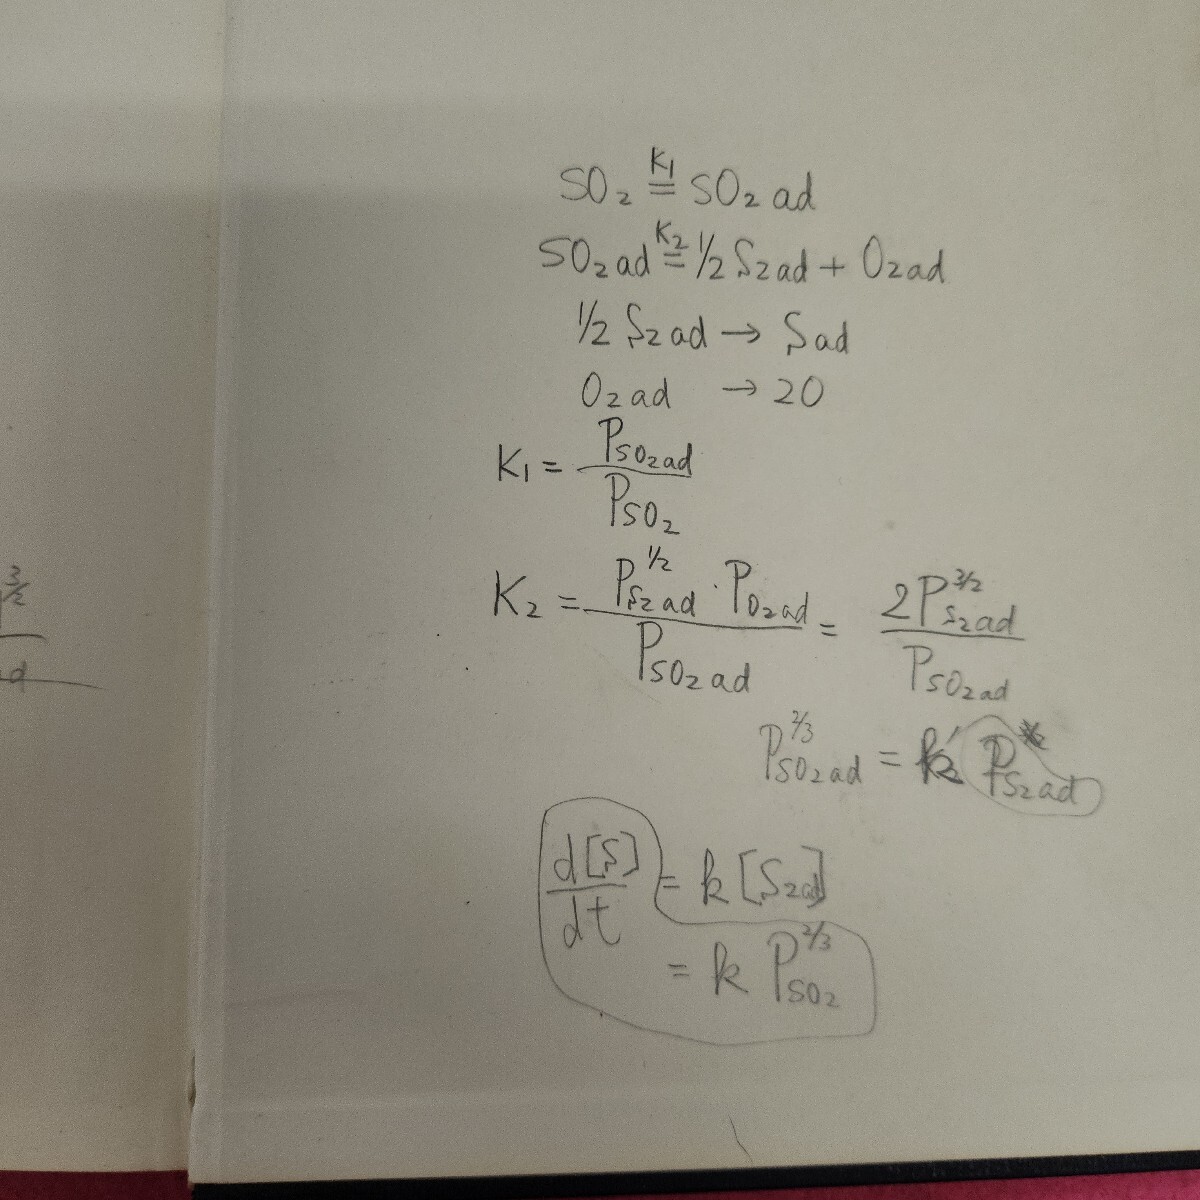 3/2
ad
SO₂ K₁ = SO₂ ad
SO₂ ad K₂ = 1/2 S₂ ad + O₂ ad
1/2 S₂ ad → S ad
O₂ ad → 2O
K₁ = P SO₂ ad / P SO₂
K₂ = P S₂ ad ^1/2 · P O₂ ad / P SO₂ ad = 2 P S₂ ad ^3/2 / P SO₂ ad
P SO₂ ad ^2/3 = k₂' P S₂ ad
d[S]/dt = k [S₂ ad]
= k P SO₂ ^2/3